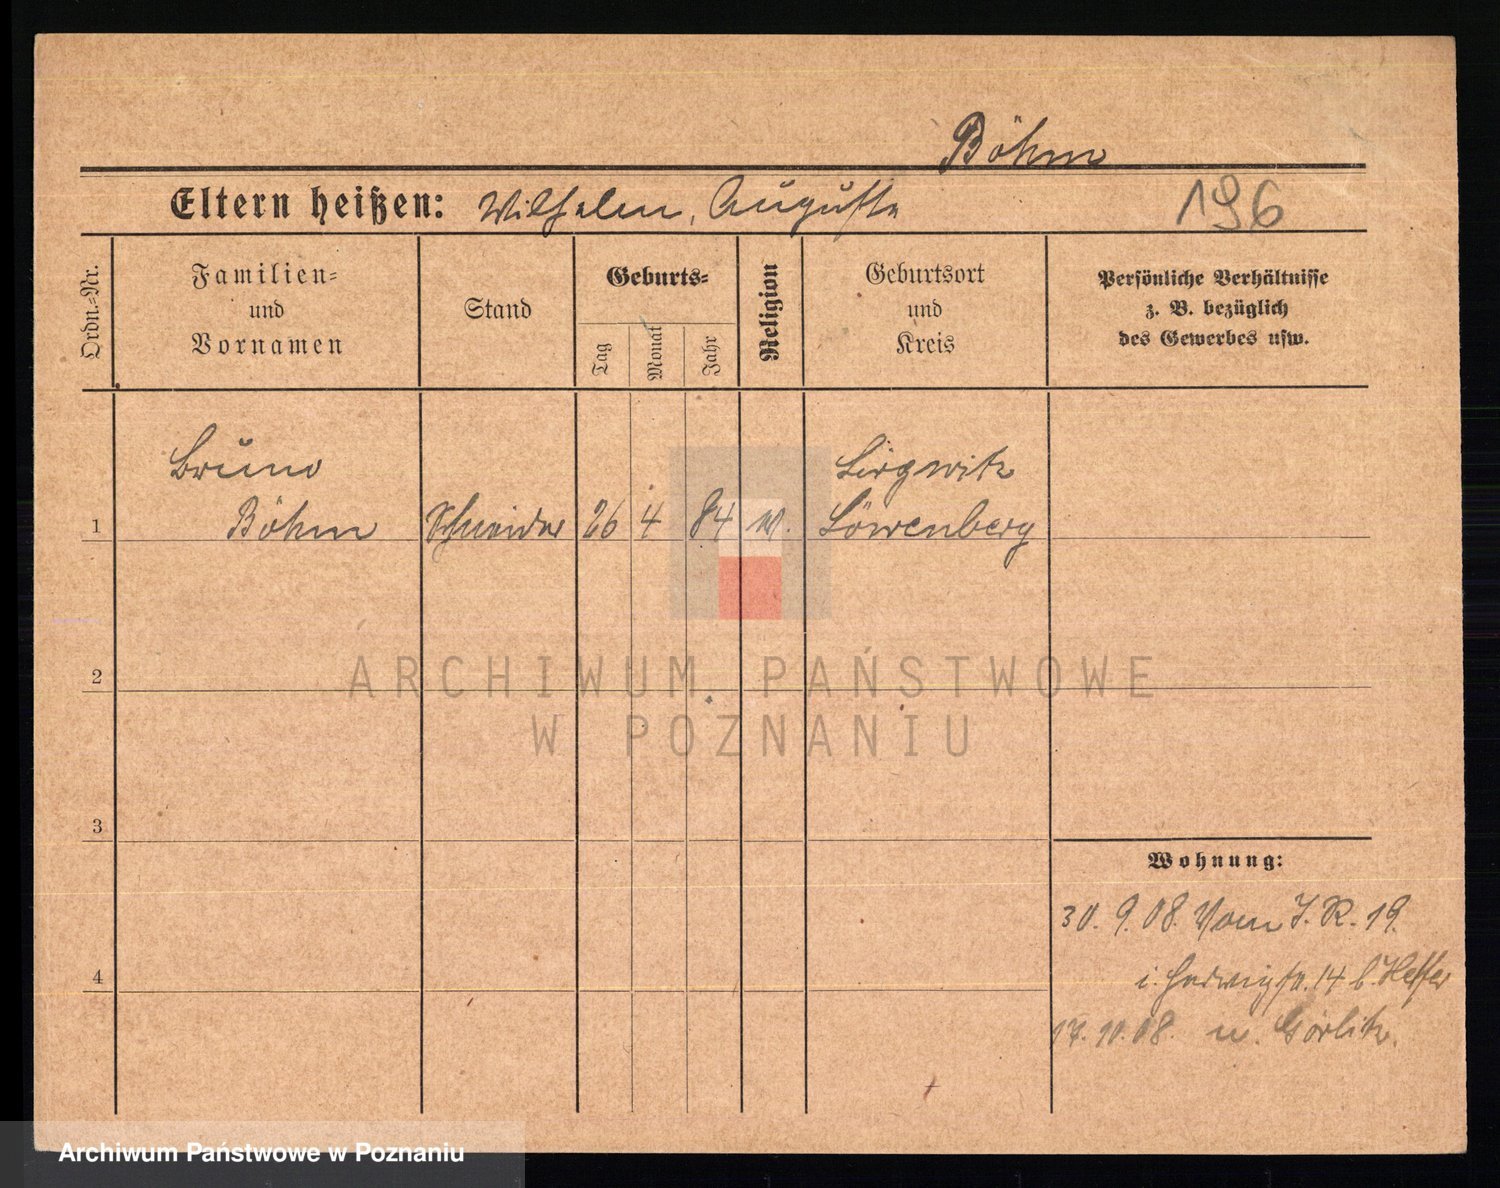 Böhm
Eltern heißen: Wilhelm, Auguste
196
Ordn.=Nr.
Familien=
und
Vornamen
Stand
Geburts=
Tag
Monat
Jahr
Religion
Geburtsort
und
Kreis
Persönliche Verhältnisse
z. B. bezüglich
des Gewerbes usw.
Bruno
1 Böhm Schneider 26 4 84 Löwenberg
2
ARCHIWUM PAŃSTWOWE
W POZNANIU
3
Wohnung:
30. 9. 08. Vom J. R. 19.
4
i. Hedwigstr. 14 b.
17. 10. 08. n. Görlitz.
Archiwum Państwowe w Poznaniu